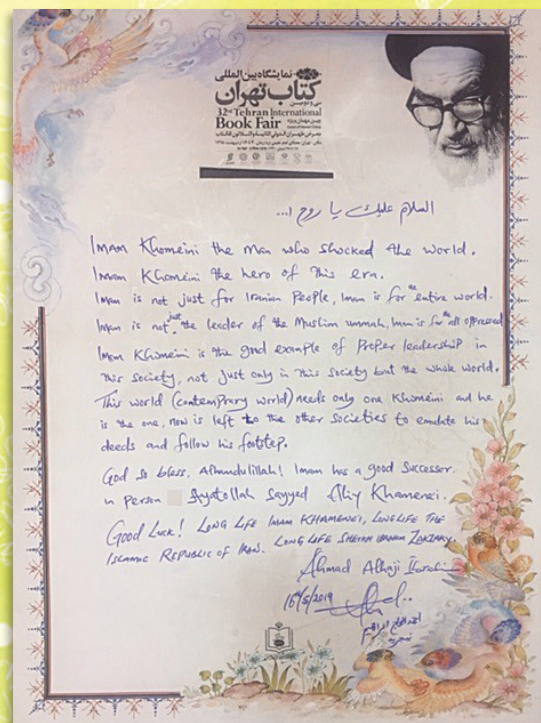 نمایشگاه بین المللی
کتاب تهران
سی و دومین
32nd Tehran International
Book Fair
السلام علیک یا روح ا...
IMAM Khomeini the Man who shocked the world.
Imam Khomeini the hero of this era.
Imam is not just for Iranian People, Imam is for the entire world.
Imam is not just the leader of the Muslim ummah, Imam is for the all oppressed
Imam Khomeini is the good example of Proper leadership in
this society, not just only in this society but the whole world.
This world (contemprary world) needs only one Khomeini and he
is the one, now is left to the other societies to emulate his
deeds and follow his footstep.
God so bless, Alhamdulillah! Imam has a good Successer.
in Person Ayatollah Sayyed Aliy Khamenei.
Good Luck! LONG LIFE IMAM KHAMENEI, LONG LIFE THE
ISLAMIC REPUBLIC OF IRAN. LONG LIFE SHEIKH ZAKZAKY.
Ahmad Alhaji
16/5/2019